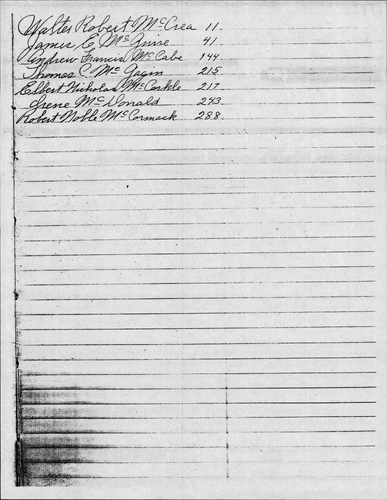 Walter Robert McCrea 11.
James E. McGuire 41.
Andrew Francis McCabe 144.
Thomas C. McGagin 215.
Elbert Nicholas McCorkle 217.
Irene McDonald 243
Robert Noble McCormack 288.